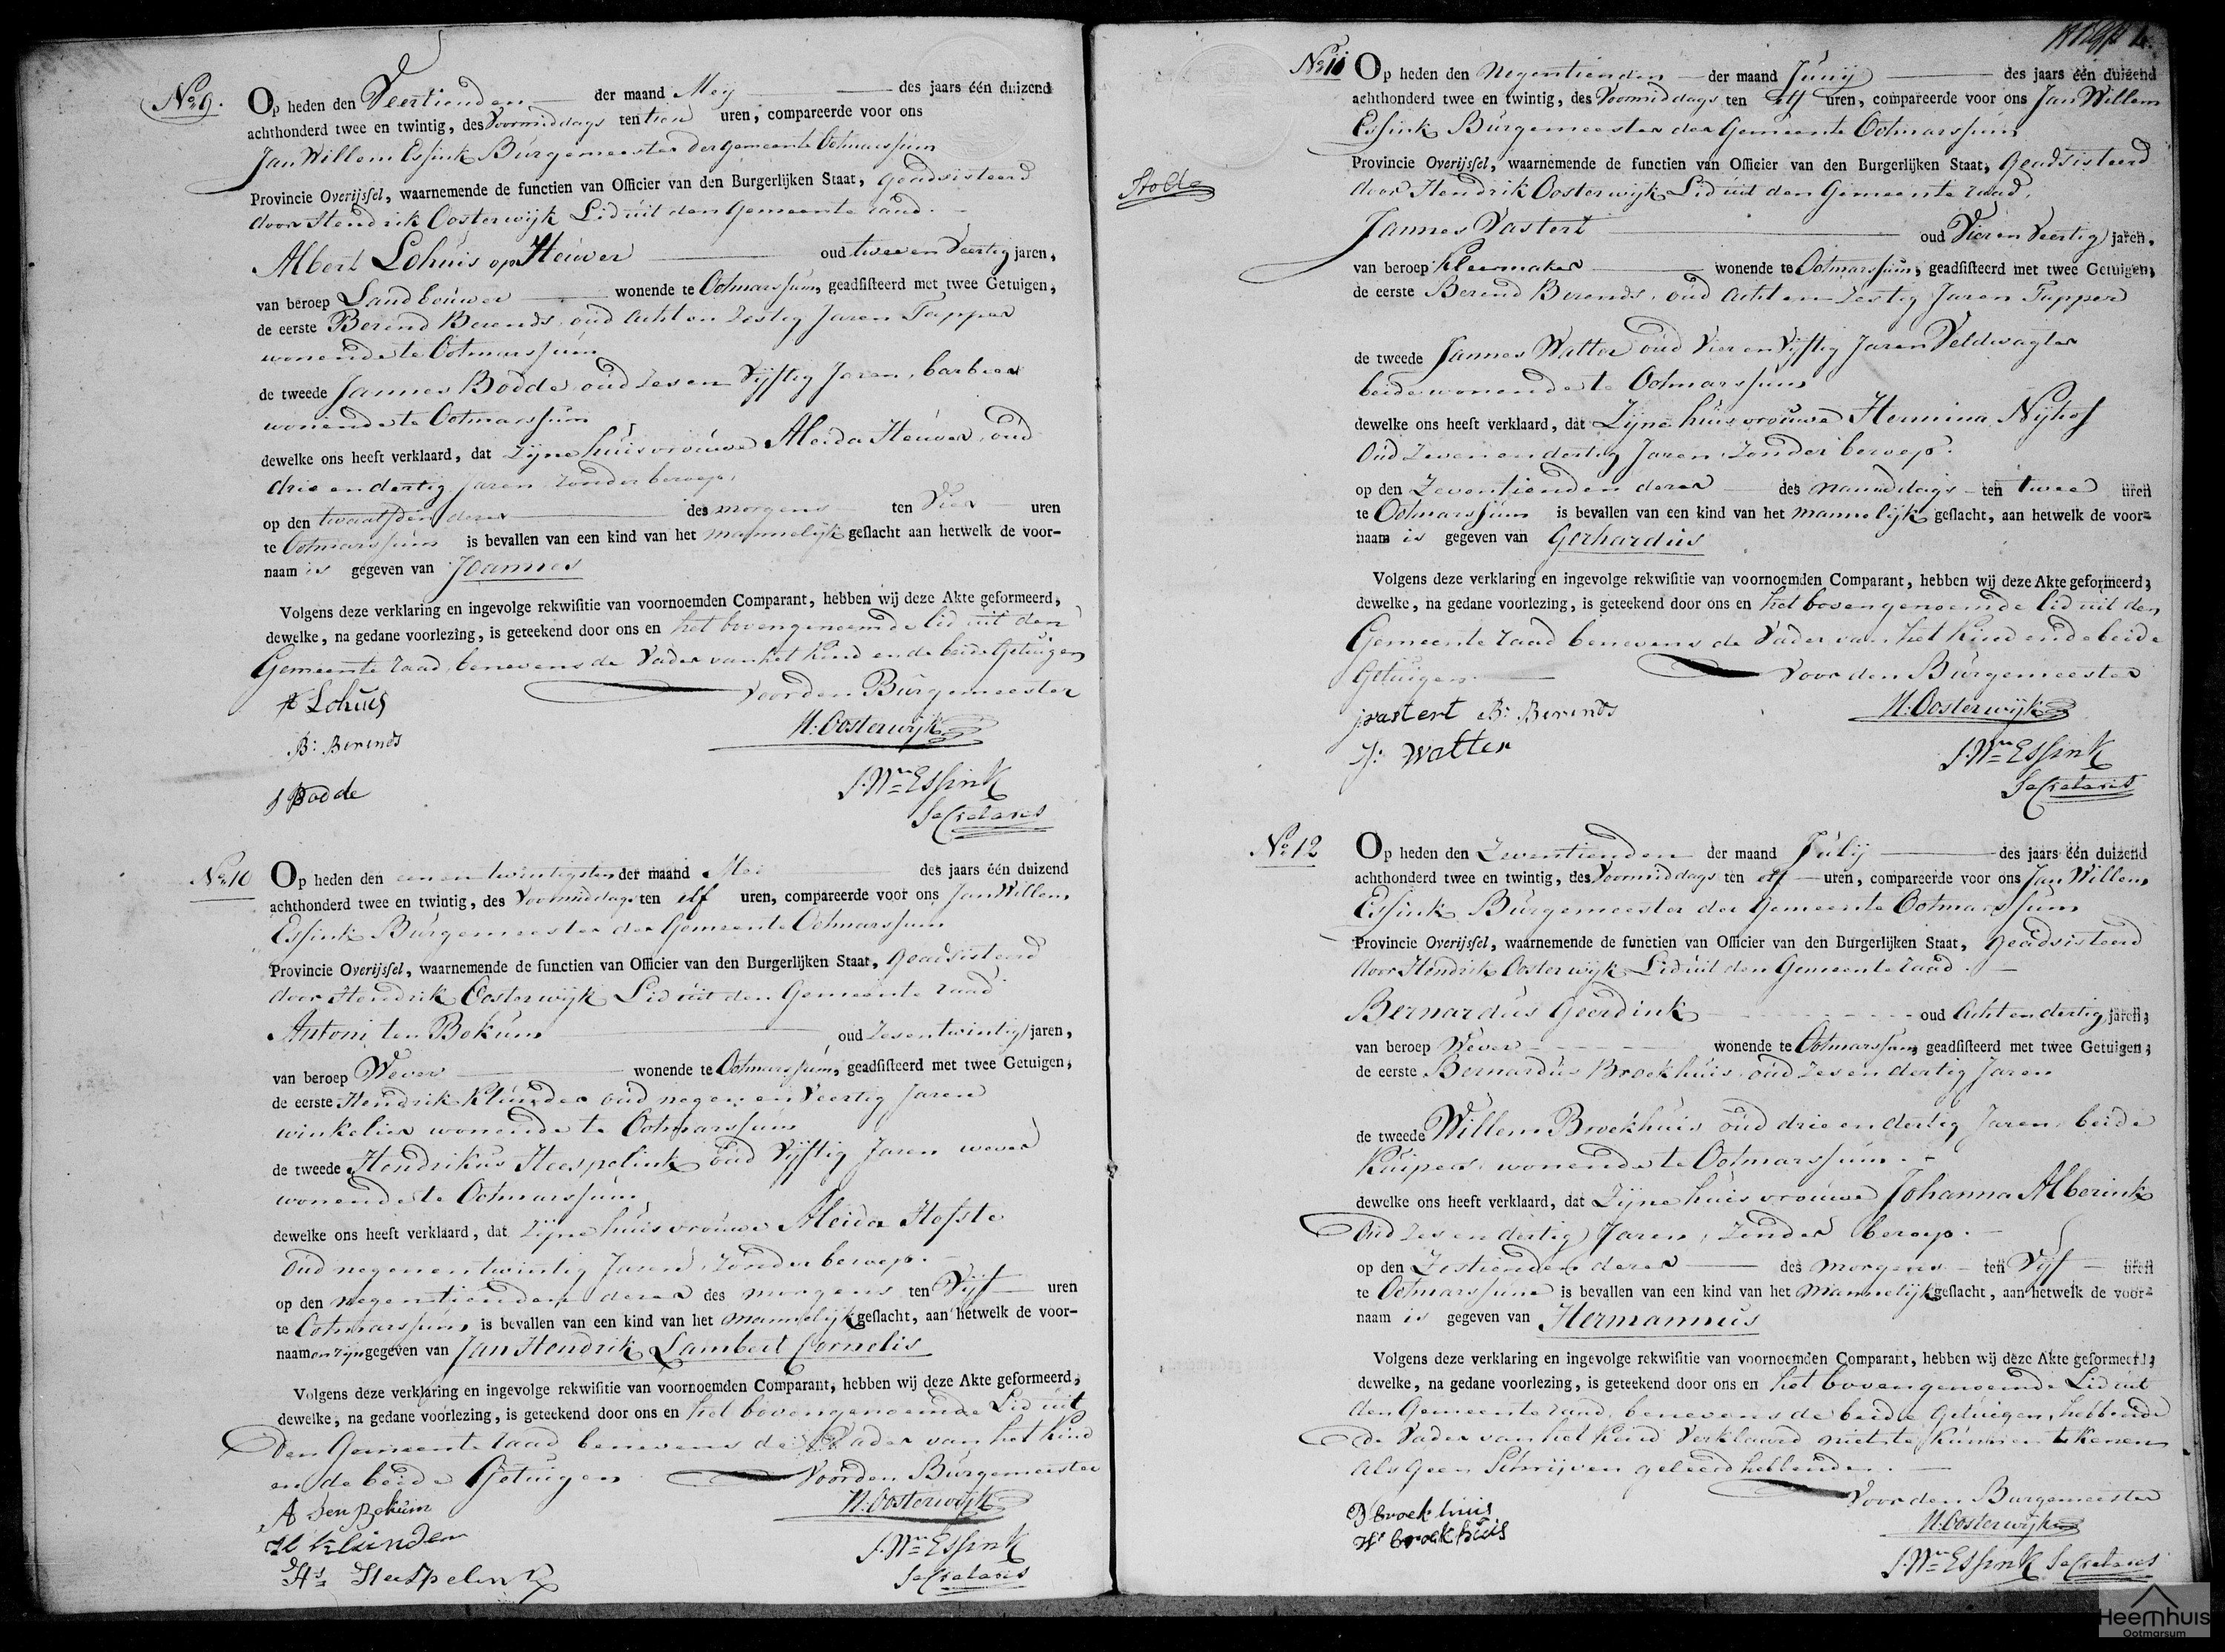 No. 9. Op heden den Veertienden der maand Mey des jaars één duizend
achthonderd twee en twintig, des Voormiddags ten tien uren, compareerde voor ons
Jan Willem Essink Burgemeester der Gemeente Ootmarssum
Provincie Overijssel, waarnemende de functien van Officier van den Burgerlijken Staat, geadsisteerd
door Hendrik Oosterwijk Lid uit den Gemeente raad.
Albert Lohuis op Heuver oud twee en Veertig jaren,
van beroep Landbouwer wonende te Ootmarssum, geadsisteerd met twee Getuigen,
de eerste Berend Berends oud Acht en Zestig Jaren Tapper
wonende te Ootmarssum
de tweede Jannes Bodde oud Zes en Vijftig Jaren, barbier
wonende te Ootmarssum
dewelke ons heeft verklaard, dat Zijne huisvrouwe Aleida Heuver, oud
drie en dertig Jaren Zonder beroep,
op den twaalfden dezer des morgens ten Vier uren
te Ootmarssum is bevallen van een kind van het mannelijk geslacht aan hetwelk de voor-
naam is gegeven van Joannes
Volgens deze verklaring en ingevolge rekwisitie van voornoemden Comparant, hebben wij deze Akte geformeerd,
dewelke, na gedane voorlezing, is geteekend door ons en het bovengenoemde lid uit den
Gemeente raad, benevens de Vader van het Kind en de beide Getuigen
Voor den Burgemeester
Lohuis
H. Oosterwijk
B: Berends
J. Wm Essink
J Bodde
Secretaris
No. 10 Op heden den een en twintigsten der maand Mei des jaars één duizend
achthonderd twee en twintig, des Voormiddags ten elf uren, compareerde voor ons Jan Willem
Essink Burgemeester der Gemeente Ootmarssum
Provincie Overijssel, waarnemende de functien van Officier van den Burgerlijken Staat, geadsisteerd
door Hendrik Oosterwijk Lid uit den Gemeente raad
Antoni ten Bokum oud Zes en twintig jaren,
van beroep Wever wonende te Ootmarssum, geadsisteerd met twee Getuigen,
de eerste Hendrik Klunder oud negen en Veertig Jaren
winkelier wonende te Ootmarssum
de tweede Hendrikus Heespelink oud Vijftig Jaren wever
wonende te Ootmarssum
dewelke ons heeft verklaard, dat Zijne huisvrouwe Aleida Hofste
Oud negen en twintig Jaren, Zonder beroep.
op den negentienden dezer des morgens ten Vijf uren
te Ootmarssum is bevallen van een kind van het mannelijk geslacht, aan hetwelk de voor-
naamen zijn gegeven van Jan Hendrik Lambert Cornelis
Volgens deze verklaring en ingevolge rekwisitie van voornoemden Comparant, hebben wij deze Akte geformeerd,
dewelke, na gedane voorlezing, is geteekend door ons en het bovengenoemde Lid uit
den Gemeente raad benevens de Vader van het Kind
en de beide Getuigen Voor den Burgemeester
A ten Bokum
H. Oosterwijk
H Klunder
J. Wm Essink
Hs Heespelink
Secretaris
No. 11 Op heden den Negentienden der maand Junij des jaars één duizend
achthonderd twee en twintig, des Voormiddags ten Elf uren, compareerde voor ons Jan Willem
Essink Burgemeester der Gemeente Ootmarssum
Provincie Overijssel, waarnemende de functien van Officier van den Burgerlijken Staat, geadsisteerd
Stolte
door Hendrik Oosterwijk Lid uit den Gemeente raad.
Jannes Vastert oud Vier en Veertig jaren,
van beroep Kleermaker wonende te Ootmarssum, geadsisteerd met twee Getuigen,
de eerste Berend Berends, oud Acht en Zestig Jaren Tapper
de tweede Jannes Watter oud Vier en Vijftig Jaren Veldwagter
beide wonende te Ootmarssum
dewelke ons heeft verklaard, dat Zijne huisvrouwe Hermina Nijhof
Oud Zeven en dertig Jaren Zonder beroep.
op den Zeventienden dezer des namiddags ten twee uren
te Ootmarssum is bevallen van een kind van het mannelijk geslacht, aan hetwelk de voor-
naam is gegeven van Gerhardus
Volgens deze verklaring en ingevolge rekwisitie van voornoemden Comparant, hebben wij deze Akte geformeerd,
dewelke, na gedane voorlezing, is geteekend door ons en het bovengenoemde lid uit den
Gemeente raad benevens de Vader van het Kind en de beide
Getuigen. Voor den Burgemeester
jvastert B: Berends
H. Oosterwijk
J: Watter
J. Wm Essink
Secretaris
No. 12 Op heden den Zeventienden der maand Julij des jaars één duizend
achthonderd twee en twintig, des Voormiddags ten elf uren, compareerde voor ons Jan Willem
Essink Burgemeester der Gemeente Ootmarssum
Provincie Overijssel, waarnemende de functien van Officier van den Burgerlijken Staat, geadsisteerd
door Hendrik Oosterwijk Lid uit den Gemeente raad.
Bernardus Geerdink oud Acht en dertig jaren,
van beroep Wever wonende te Ootmarssum, geadsisteerd met twee Getuigen,
de eerste Bernardus Broekhuis oud Zes en dertig Jaren
de tweede Willem Broekhuis oud drie en dertig Jaren, beide
Kuipers, wonende te Ootmarssum.
dewelke ons heeft verklaard, dat Zijne huisvrouwe Johanna Alberink
Oud Zes en dertig Jaren, Zonder beroep.
op den Zestienden dezer des morgens ten Vijf uren
te Ootmarssum is bevallen van een kind van het mannelijk geslacht, aan hetwelk de voor-
naam is gegeven van Hermannus
Volgens deze verklaring en ingevolge rekwisitie van voornoemden Comparant, hebben wij deze Akte geformeerd,
dewelke, na gedane voorlezing, is geteekend door ons en het bovengenoemde Lid uit
den Gemeente raad, benevens de beide Getuigen, hebbende
de Vader van het Kind Verklaard niet te kunnen tekenen
als geen Schrijven geleerd hebbende.
Voor den Burgemeester
B broekhuis
H. Oosterwijk
W broekhuis
J. Wm Essink Secretaris
Heemhuis
Ootmarsum